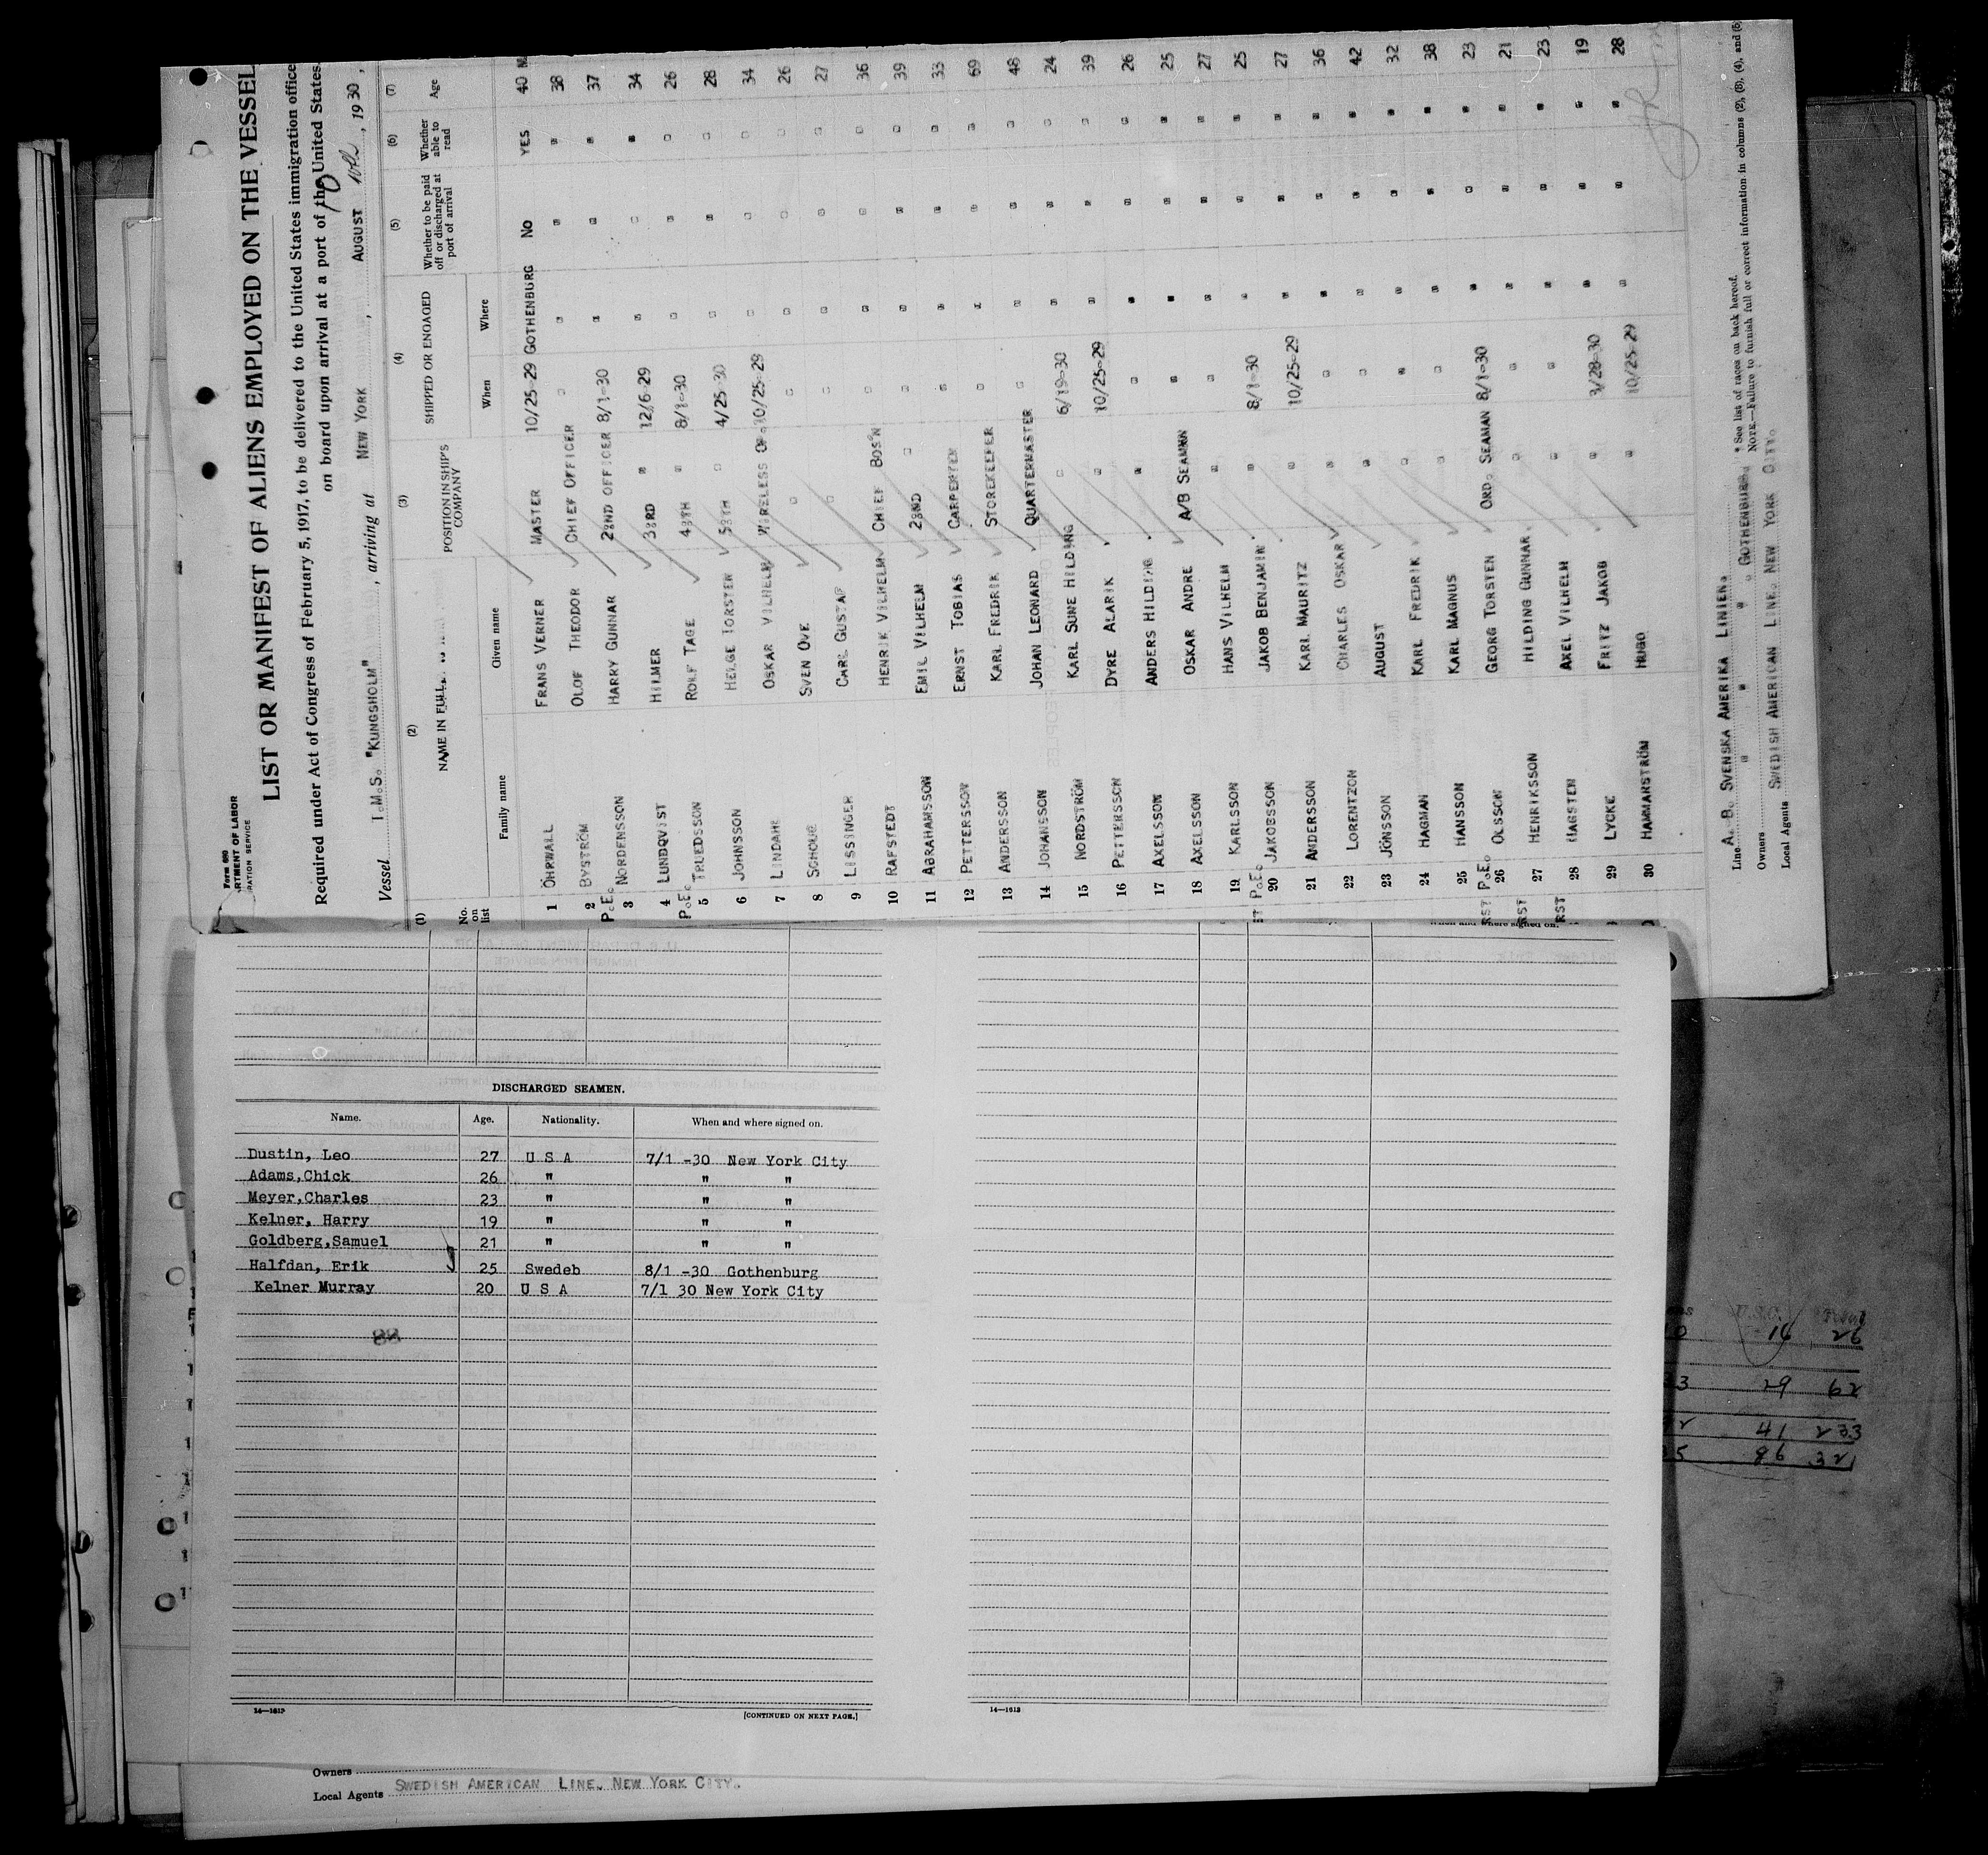 Form 680
RTMENT OF LABOR
RATION SERVICE
LIST OR MANIFEST OF ALIENS EMPLOYED ON THE VESSEL
Required under Act of Congress of February 5, 1917, to be delivered to the United States immigration office
on board upon arrival at a port of the United States
Vessel T.M.S. "KUNGSHOLM", arriving at NEW YORK, AUGUST 10th, 1930,
(1) (2) (3) (4) (5) (6) (7)
No. on list NAME IN FULL POSITION IN SHIP'S COMPANY SHIPPED OR ENGAGED Whether to be paid off or discharged at port of arrival Whether able to read Age
Family name Given name When Where
1 ÖHRWALL FRANS VERNER MASTER 10/25-29 GOTHENBURG NO YES 40 M
2 BYSTRÖM OLOF THEODOR CHIEF OFFICER " " " " 38
P.E. 3 NORDENSSON HARRY GUNNAR 2:ND OFFICER 8/1-30 " " " 37
4 LUNDQVIST HILMER 3:RD " 12/6-29 " " " 34
P.E. 5 TRUEDSSON ROLF TAGE 4:TH " 8/1-30 " " " 26
6 JOHNSSON HELGE TORSTEN 5:TH " 4/25-30 " " " 28
7 LINDAHL OSKAR VILHELM WIRELESS OP. 10/25-29 " " " 34
8 SCHOUG SVEN OVE " " " " " 26
9 LISSINGER CARL GUSTAF " " " " " 27
10 RAFSTEDT HENRIK VILHELM CHIEF BOS'N " " " " 36
11 ABRAHAMSSON EMIL VILHELM 2:ND " " " " " 39
12 PETTERSSON ERNST TOBIAS CARPENTER " " " " 33
13 ANDERSSON KARL FREDRIK STOREKEEPER " " " " 69
14 JOHANSSON JOHAN LEONARD QUARTERMASTER " " " " 48
15 NORDSTRÖM KARL SUNE HILDING " 6/19-30 " " " 24
16 PETTERSSON DYRE ALARIK " 10/25-29 " " " 39
17 AXELSSON ANDERS HILDING " " " " " 26
18 AXELSSON OSKAR ANDRE A/B SEAMAN " " " " 25
19 KARLSSON HANS VILHELM " " " " " 27
ST P.E. 20 JAKOBSSON JAKOB BENJAMIN " 8/1-30 " " " 25
21 ANDERSSON KARL MAURITZ " 10/25-29 " " " 27
22 LORENTZON CHARLES OSKAR " " " " " 36
23 JÖNSSON AUGUST " " " " " 42
24 HAGMAN KARL FREDRIK " " " " " 32
25 HANSSON KARL MAGNUS " " " " " 38
RST P.E. 26 OLSSON GEORG TORSTEN ORD. SEAMAN 8/1-30 " " " 23
RST 27 HENRIKSSON HILDING GUNNAR " " " " " 21
RST 28 HAGSTEN AXEL VILHELM " " " " " 23
29 LYCKE FRITZ JAKOB " 3/28-30 " " " 19
30 HAMMARSTRÖM HUGO " 10/25-29 " " " 28
Line A. B. SVENSKA AMERIKA LINIEN. * See list of races on back hereof.
Owners " " " " GOTHENBURG. NOTE.—Failure to furnish full or correct information in columns (2), (3), (4), and (5)
Local Agents SWEDISH AMERICAN LINE. NEW YORK CITY.
When and where signed on.
DISCHARGED SEAMEN.
Name. Age. Nationality. When and where signed on.
Dustin, Leo 27 U S A 7/1 -30 New York City
Adams,Chick 26 " " "
Meyer,Charles 23 " " "
Kelner, Harry 19 " " "
Goldberg,Samuel 21 " " "
Halfdan, Erik 25 Swedeb 8/1 -30 Gothenburg
Kelner Murray 20 U S A 7/1 30 New York City
88
14—1613 [CONTINUED ON NEXT PAGE.]
14—1613
Owners
Local Agents SWEDISH AMERICAN LINE. NEW YORK CITY.
16 26
29 62
41 233
86 321